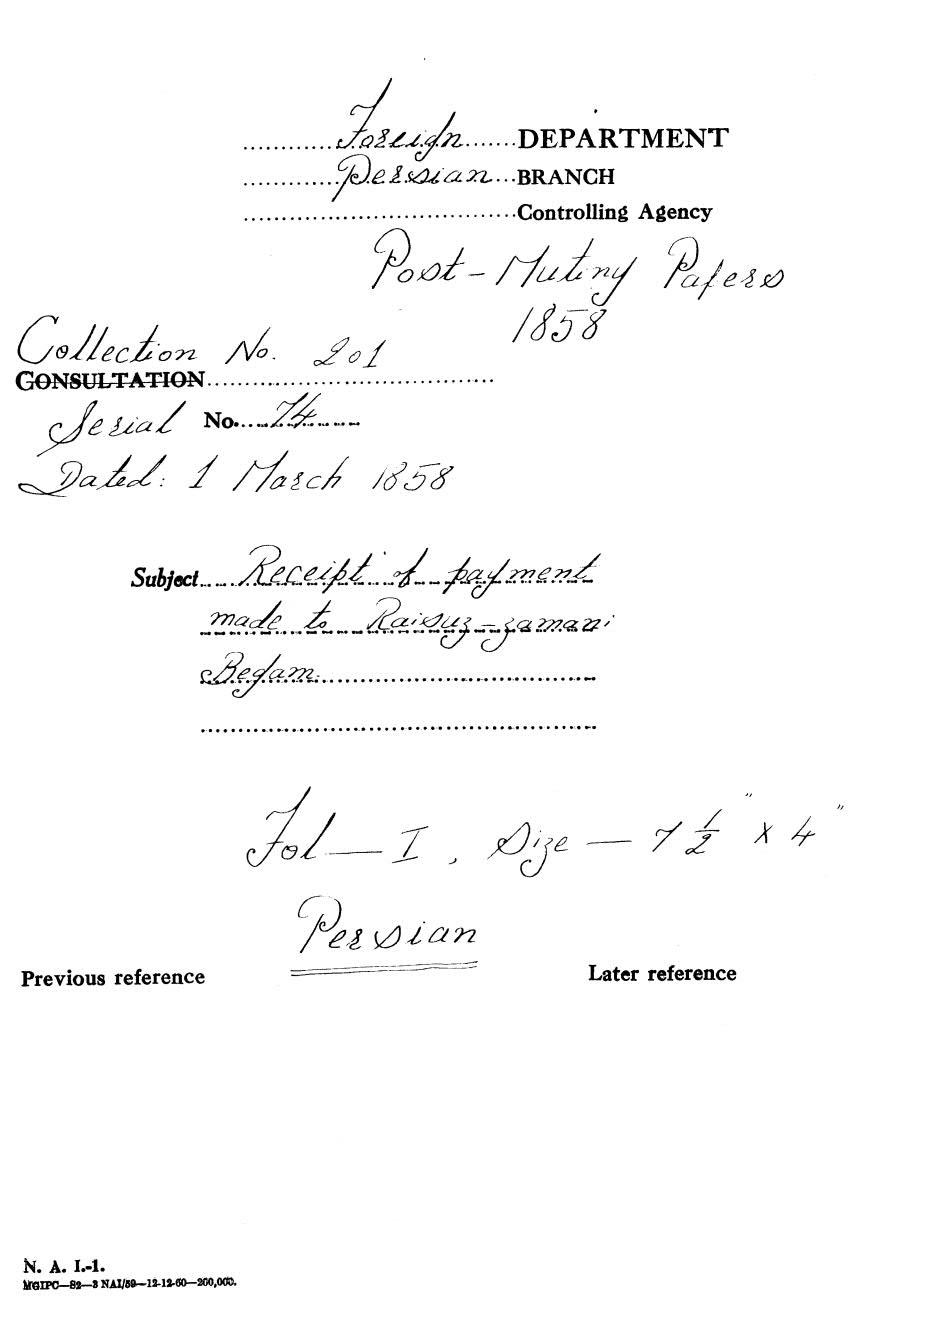 Foreign DEPARTMENT
Persian BRANCH
Controlling Agency
Post-Mutiny Papers
1858
Collection No. 201
CONSULTATION
Serial No. 74
Dated: 1 March 1858
Subject Receipt of payment
made to Raisuz-zamani
Begam.
Fol — I, Size — 7 1/2" x 4"
Persian
Previous reference Later reference
N. A. I.-1.
MGIPC—S2—3 NAI/59—12-12-60—200,000.